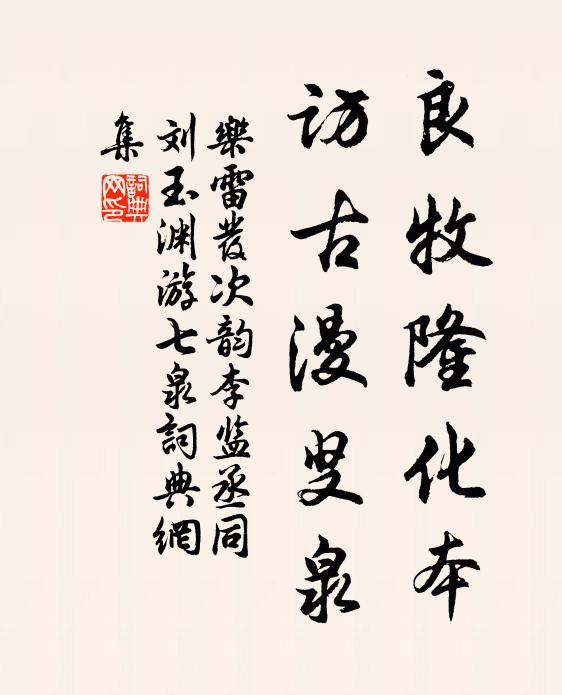 良牧隆化本
访古漫叟泉
樂雷發次韵李监丞同
刘玉渊游七泉詞典網
集
詞典
网印